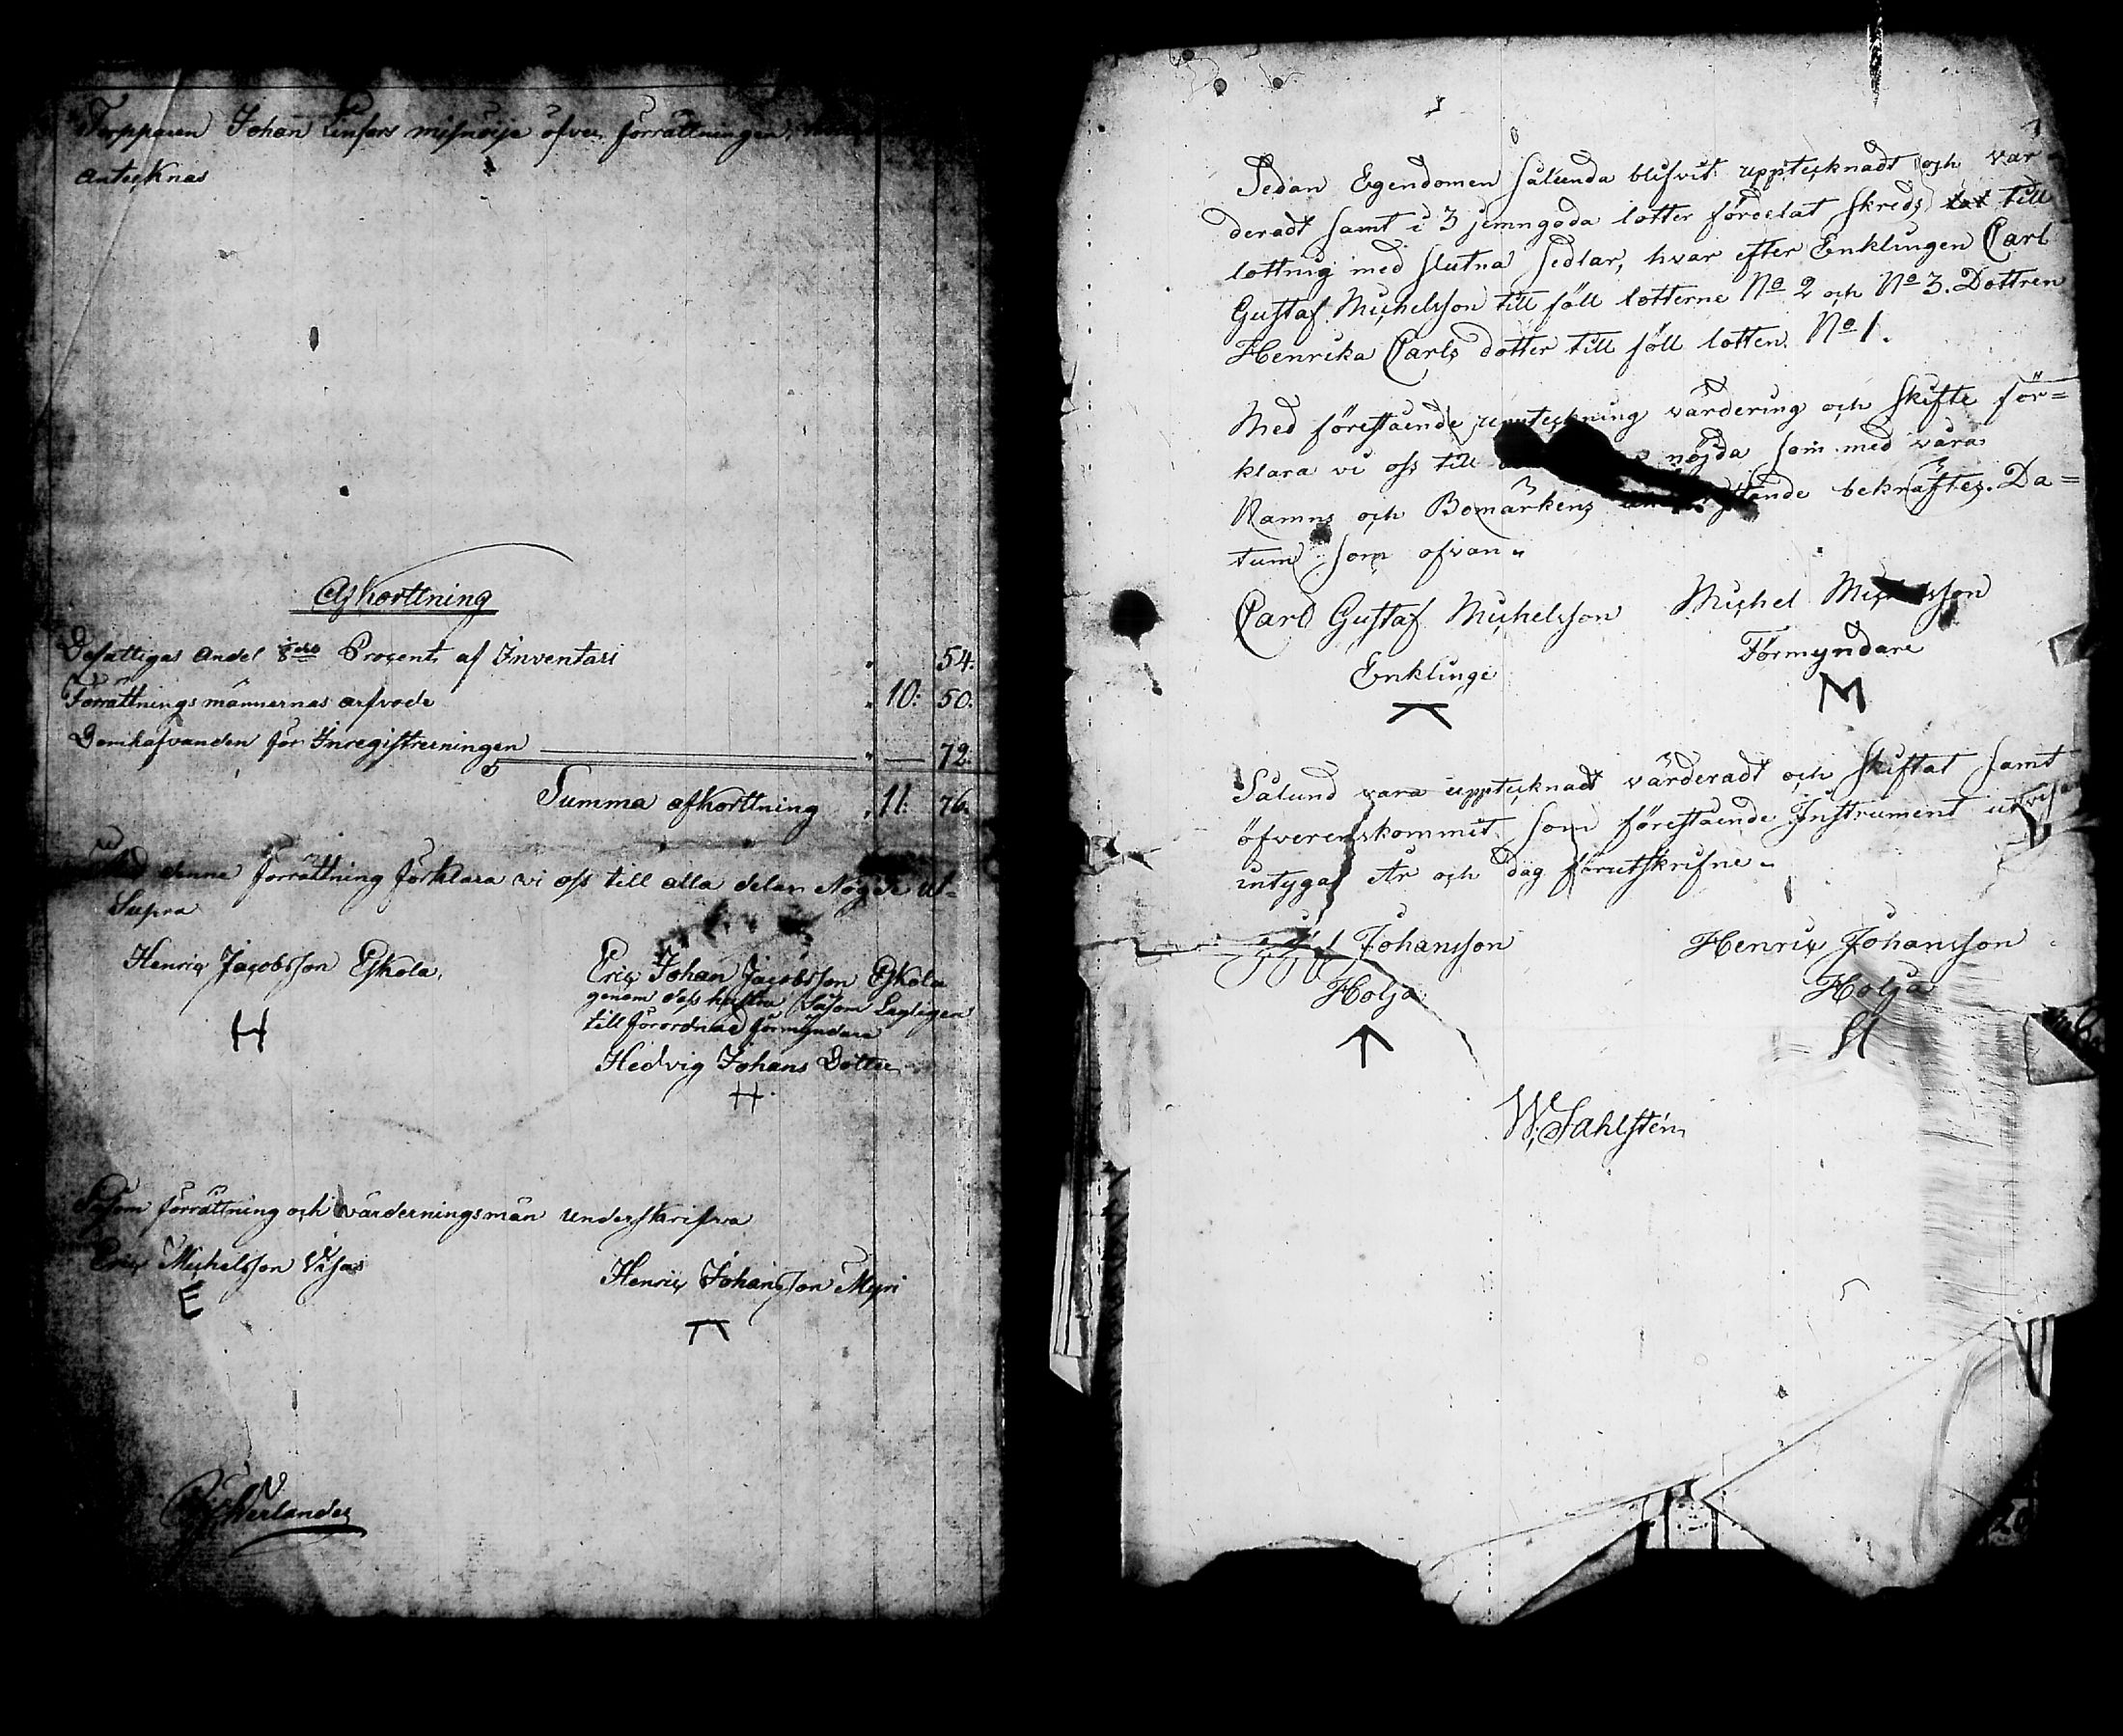 Torpparen Johan Linfors misnöije öfver förrättningen,
Antecknas
Afkorttning
Defattigas Andel 8de Procent af Inventari " 54.
Förrättningsmännernas arfvode " 10: 50.
Domhafvanden för Inregistreringen " — 72.
Summa afkorttning " 11: 76.
Med denna förrättning förklara vi oss till alla delar Nögde ut-
Supra
Henric Jacobsson Eskola.
H
Eric Johan Jacobsson Eskola
genom dess hustru såsom Lagligen
till förordnad förmyndare
Hedvig Johans Dotter
H
Såsom förrättning och Värderningsmän underskrifva
Eric Michelsson Visas
E
Henric Johansson Myri
Sedan Egendomen sålunda blifvit upptecknadt och vär-
deradt samt i 3 jemngoda lotter fördelat skreds till
lottnig med slutna sedlar, hvar efter Enklingen Carl
Gustaf Michelsson till föll lotterne No 2 och No 3. Dottren
Henrika Carls dotter till föll lotten No 1.
Med förestående uppteckning värdering och skifte för=
klara vi oss till nöjda som med våra
Namns och Bomärkens bekräftes. Da=
tum som ofvan.
Carl Gustaf Michelsson
Enklinge
Michel Michelsson
Förmyndare
M
Sålund vara upptecknadt värderadt och skiftat samt
öfverenskommit som förestående Instrument utvisar
intygas År och dag förutskrifne.
Johansson
Holja
Henric Johansson
Holja
W. Sahlstén